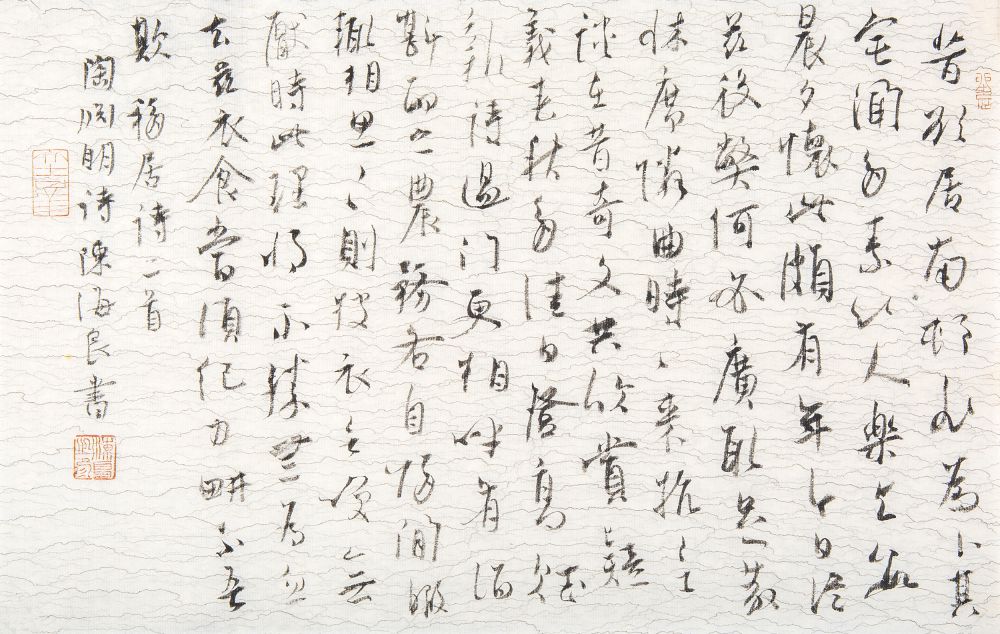 昔欲居南邨非為卜其
宅聞多素心人樂与數
晨夕懷此頗有年今日從
茲役弊何必廣取足蔽
床席隣曲時〻来抗言
談在昔奇文共欣賞疑
義春秋多佳日登高賦
新詩過门更相呼有酒
斟酌之農務各自歸閒暇
輒相思〻則披衣言笑無
厭時此理将不勝無為忽
去茲衣食當須紀力耕不吾
欺 移居詩二首
陶渊明诗陳海良書